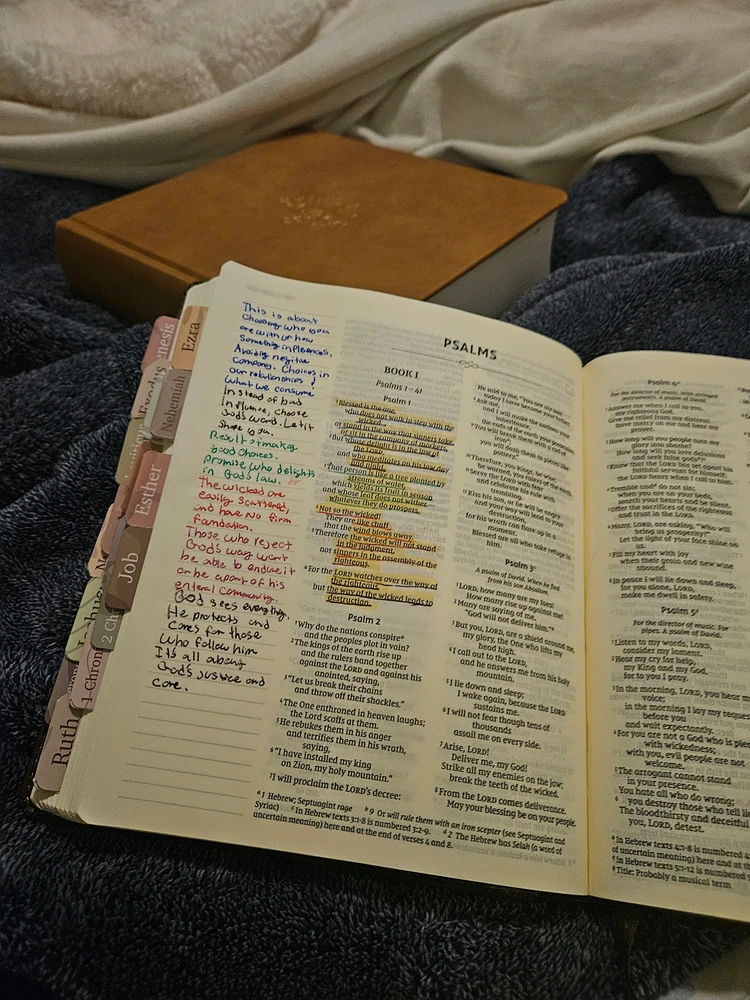 Ezra
Nehemiah
Esther
Job
2 Ch
1 Chron
Ruth
This is about
Choosing who you
are with or how
Something influences,
Avoiding negitive
company. Choices in
our relationships &
what we consume
Instead of bad
Influence, choose
God's word. Let it
Shape you.
Result of making
good choices.
promise who delights
in God's law.
The wicked are
easily scattered,
and have no firm
foundation.
Those who reject
God's way won't
be able to endure it
or be apart of his
enteral community.
God sees everything.
He protects and
Cares for those
who follow him
It's all about
God's justice and
care.
PSALMS
BOOK I
Psalms 1–41
Psalm 1
1 Blessed is the one
who does not walk in step with the
wicked
or stand in the way that sinners take
or sit in the company of mockers,
2 but whose delight is in the law of
the LORD,
and who meditates on his law day
and night.
3 That person is like a tree planted by
streams of water,
which yields its fruit in season
and whose leaf does not wither—
whatever they do prospers.
4 Not so the wicked!
They are like chaff
that the wind blows away.
5 Therefore the wicked will not stand
in the judgment,
nor sinners in the assembly of the
righteous.
6 For the LORD watches over the way of
the righteous,
but the way of the wicked leads to
destruction.
Psalm 2
1 Why do the nations conspire a
and the peoples plot in vain?
2 The kings of the earth rise up
and the rulers band together
against the LORD and against his
anointed, saying,
3 "Let us break their chains
and throw off their shackles."
4 The One enthroned in heaven laughs;
the Lord scoffs at them.
5 He rebukes them in his anger
and terrifies them in his wrath,
saying,
6 "I have installed my king
on Zion, my holy mountain."
7 I will proclaim the LORD's decree:
He said to me, "You are my son;
today I have become your father.
8 Ask me,
and I will make the nations your
9 You will break them with a rod of
iron b;
you will dash them to pieces like
pottery."
10 Therefore, you kings, be wise;
be warned, you rulers of the earth.
11 Serve the LORD with fear
and celebrate his rule with
trembling.
12 Kiss his son, or he will be angry
and your way will lead to your
destruction,
for his wrath can flare up in a
moment.
Blessed are all who take refuge in
him.
Psalm 3 c
A psalm of David. When he fled
from his son Absalom.
1 LORD, how many are my foes!
How many rise up against me!
2 Many are saying of me,
"God will not deliver him."
3 But you, LORD, are a shield around me,
my glory, the One who lifts my
head high.
4 I call out to the LORD,
and he answers me from his holy
mountain.
5 I lie down and sleep;
I wake again, because the LORD
sustains me.
6 I will not fear though tens of
thousands
assail me on every side.
7 Arise, LORD!
Deliver me, my God!
Strike all my enemies on the jaw;
break the teeth of the wicked.
8 From the LORD comes deliverance.
May your blessing be on your people.
a 1 Hebrew; Septuagint rage b 9 Or will rule them with an iron scepter (see Septuagint and
Syriac) c In Hebrew texts 3:1-8 is numbered 3:2-9. d 2 The Hebrew has Selah (a word of
uncertain meaning) here and at the end of verses 4 and 8.
Psalm 4
For the director of music. With stringed
instruments. A psalm of David.
1 Answer me when I call to you,
my righteous God.
Give me relief from my distress;
have mercy on me and hear my
prayer.
2 How long will you people turn my
glory into shame?
How long will you love delusions
and seek false gods?
3 Know that the LORD has set apart his
faithful servant for himself;
the LORD hears when I call to him.
4 Tremble and do not sin;
when you are on your beds,
search your hearts and be silent.
5 Offer the sacrifices of the righteous
and trust in the LORD.
6 Many, LORD, are asking, "Who will
bring us prosperity?"
Let the light of your face shine on
us.
7 Fill my heart with joy
when their grain and new wine
abound.
8 In peace I will lie down and sleep,
for you alone, LORD,
make me dwell in safety.
Psalm 5
For the director of music. For
pipes. A psalm of David.
1 Listen to my words, LORD,
consider my lament.
2 Hear my cry for help,
my King and my God,
for to you I pray.
3 In the morning, LORD, you hear my
in the morning I lay my requests
before you
and wait expectantly.
4 For you are not a God who is pleased
with wickedness;
with you, evil people are not
welcome.
5 The arrogant cannot stand
in your presence.
You hate all who do wrong;
6 you destroy those who tell lies
The bloodthirsty and deceitful
you, LORD, detest.
In Hebrew texts 4:1-8 is numbered 4
of uncertain meaning) here and at the
In Hebrew texts 5:1-12 is numbered 5
Title: Probably a musical term